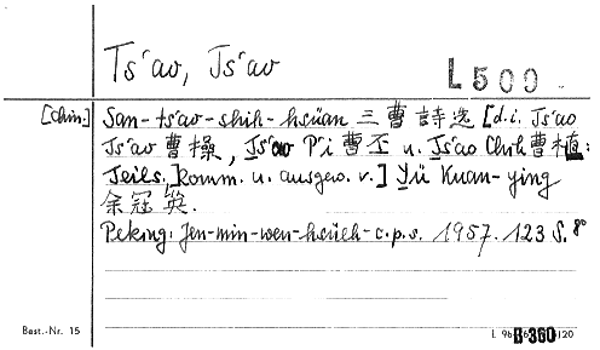 Ts'ao, Ts'ao
L 500
[Chin.] San-ts'ao-shih-hsüan 三曹詩选 [d.i. Ts'ao
Ts'ao 曹操, Ts'ao P'i 曹丕 u. Ts'ao Chih 曹植:
Teils.] [komm. u. ausgew. v.] Yü Kuan-ying
余冠英.
Peking: Jen-min-wen-hsüeh-c.p.s. 1957. 123 S. 8°
Best.-Nr. 15
B 360